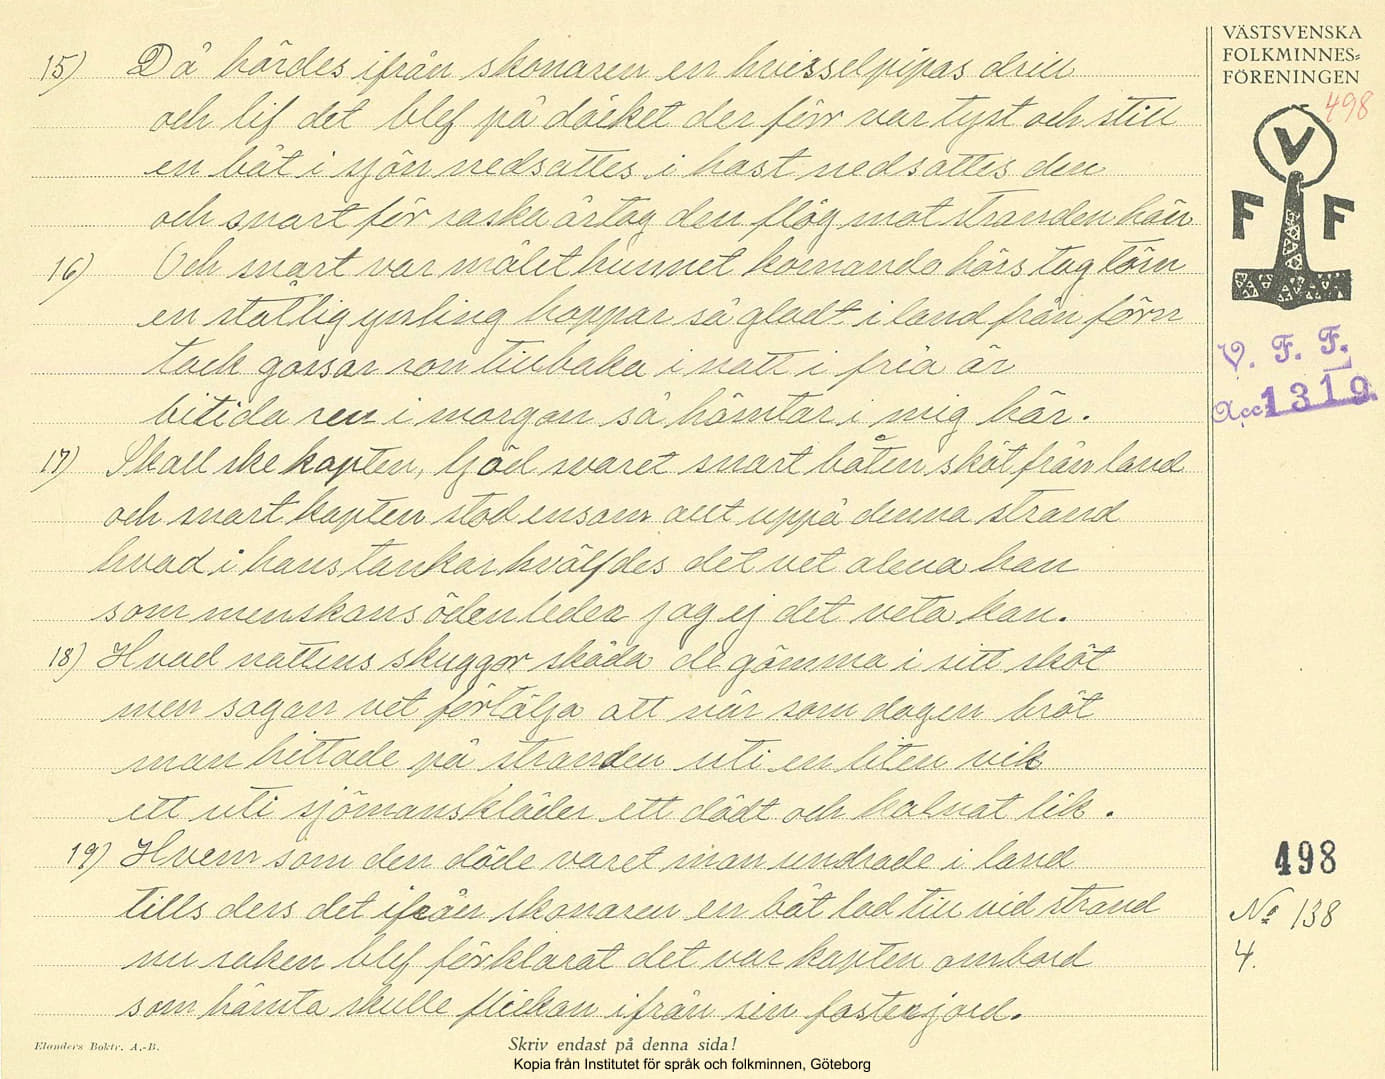 15) Då hördes ifrån skonaren en hvisselpipas drill
och lif det blef på däcket der förr var tyst och still
en båt i sjön nedsattes i hast nedsattes den
och snart för raska årtag den flög mot stranden hän
16) Och snart var målet hunnet komando hörs tag törn
en ståtlig yngling hoppar så gladt i land från förn
tack gossar ron tillbaka i natt i fria är
bitida ren i morgon så hämtar i mig här.
17) Skall ske kapten, ljöd svaret snart båten sköt från land
och snart kapten stod ensam aut uppå denna strand
hvad i hans tankar hvälfdes det vet alena han
som menskans öden leder jag ej det veta kan.
18) Hvad nattens skuggor skåda de gömma i sitt sköt
men sagan vet förtälja att när som dagen bröt
man hittade på stranden uti en liten vik
ett uti sjömanskläder ett dödt och kalnat lik.
19) Hvem som den döde varet man undrade i land
tills ders det ifrån skonaren en båt lad till vid strand
nu saken blef förklarat det var kapten ombord
som hämta skulle flickan ifrån sin fosterjord.
VÄSTSVENSKA
FOLKMINNES-
FÖRENINGEN
498
V
F F
V. F. F.
Acc 1319
498
No 138
4.
Elanders Boktr. A.-B.
Skriv endast på denna sida!
Kopia från Institutet för språk och folkminnen, Göteborg